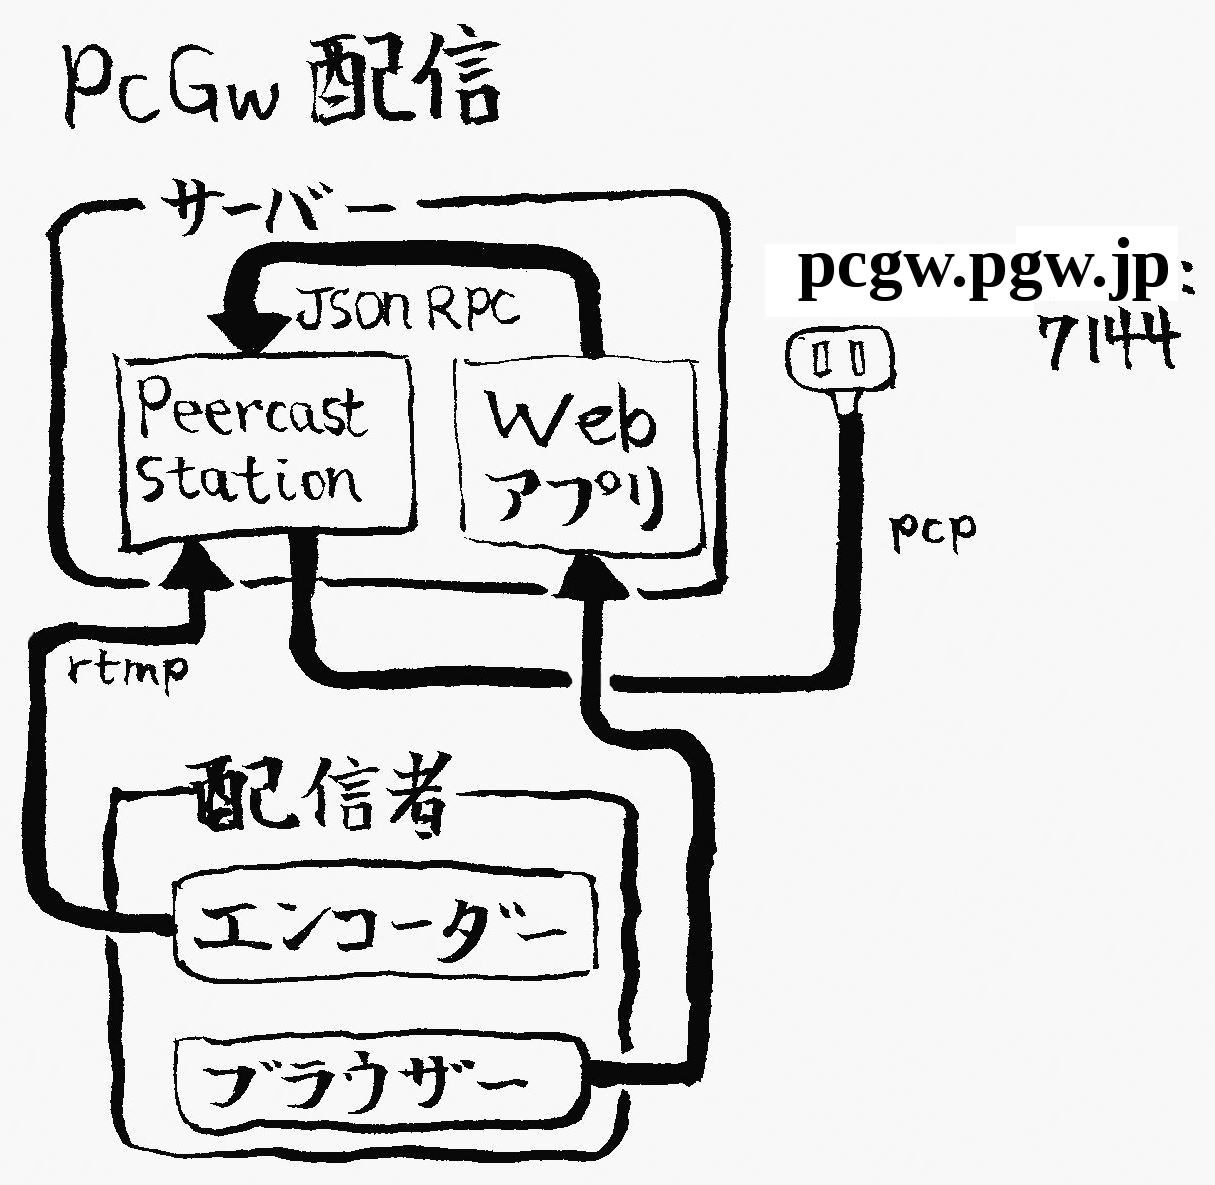 PcGw 配信
サーバー
Json RPC
Peercast
Station
Web
アプリ
pcgw.pgw.jp:
7144
pcp
rtmp
配信者
エンコーダー
ブラウザー